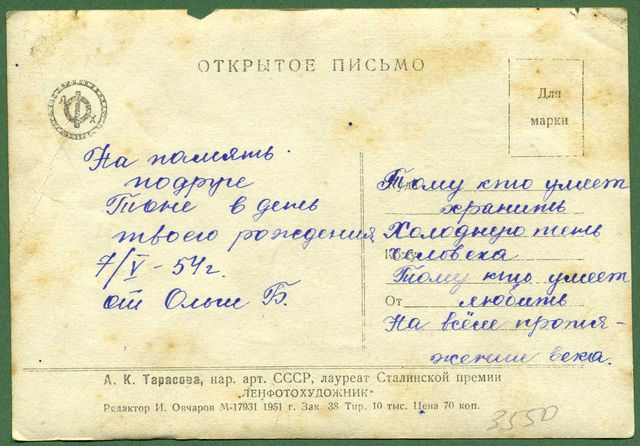 ОТКРЫТОЕ ПИСЬМО
Для
марки
На память
подруге
Тоне в день
твоего рождения
7/V - 54 г.
от Ольги Б.
Куда
Тому кто умеет
хранить
Холодную тень
Кому
человека
Тому кто умеет
От
любить
На всём протя-
жении века.
А. К. Тарасова, нар. арт. СССР, лауреат Сталинской премии
„ЛЕНФОТОХУДОЖНИК“
Редактор И. Овчаров М-17931 1951 г. Зак. 38 Тир. 10 тыс. Цена 70 коп.
3550